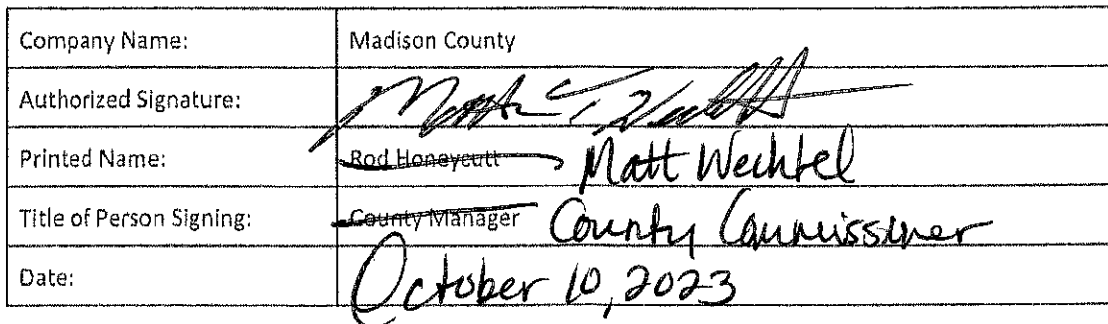 Company Name: Madison County
Authorized Signature:
Printed Name: Rod Honeycutt Matt Wechtel
Title of Person Signing: County Manager County Commissioner
Date: October 10, 2023